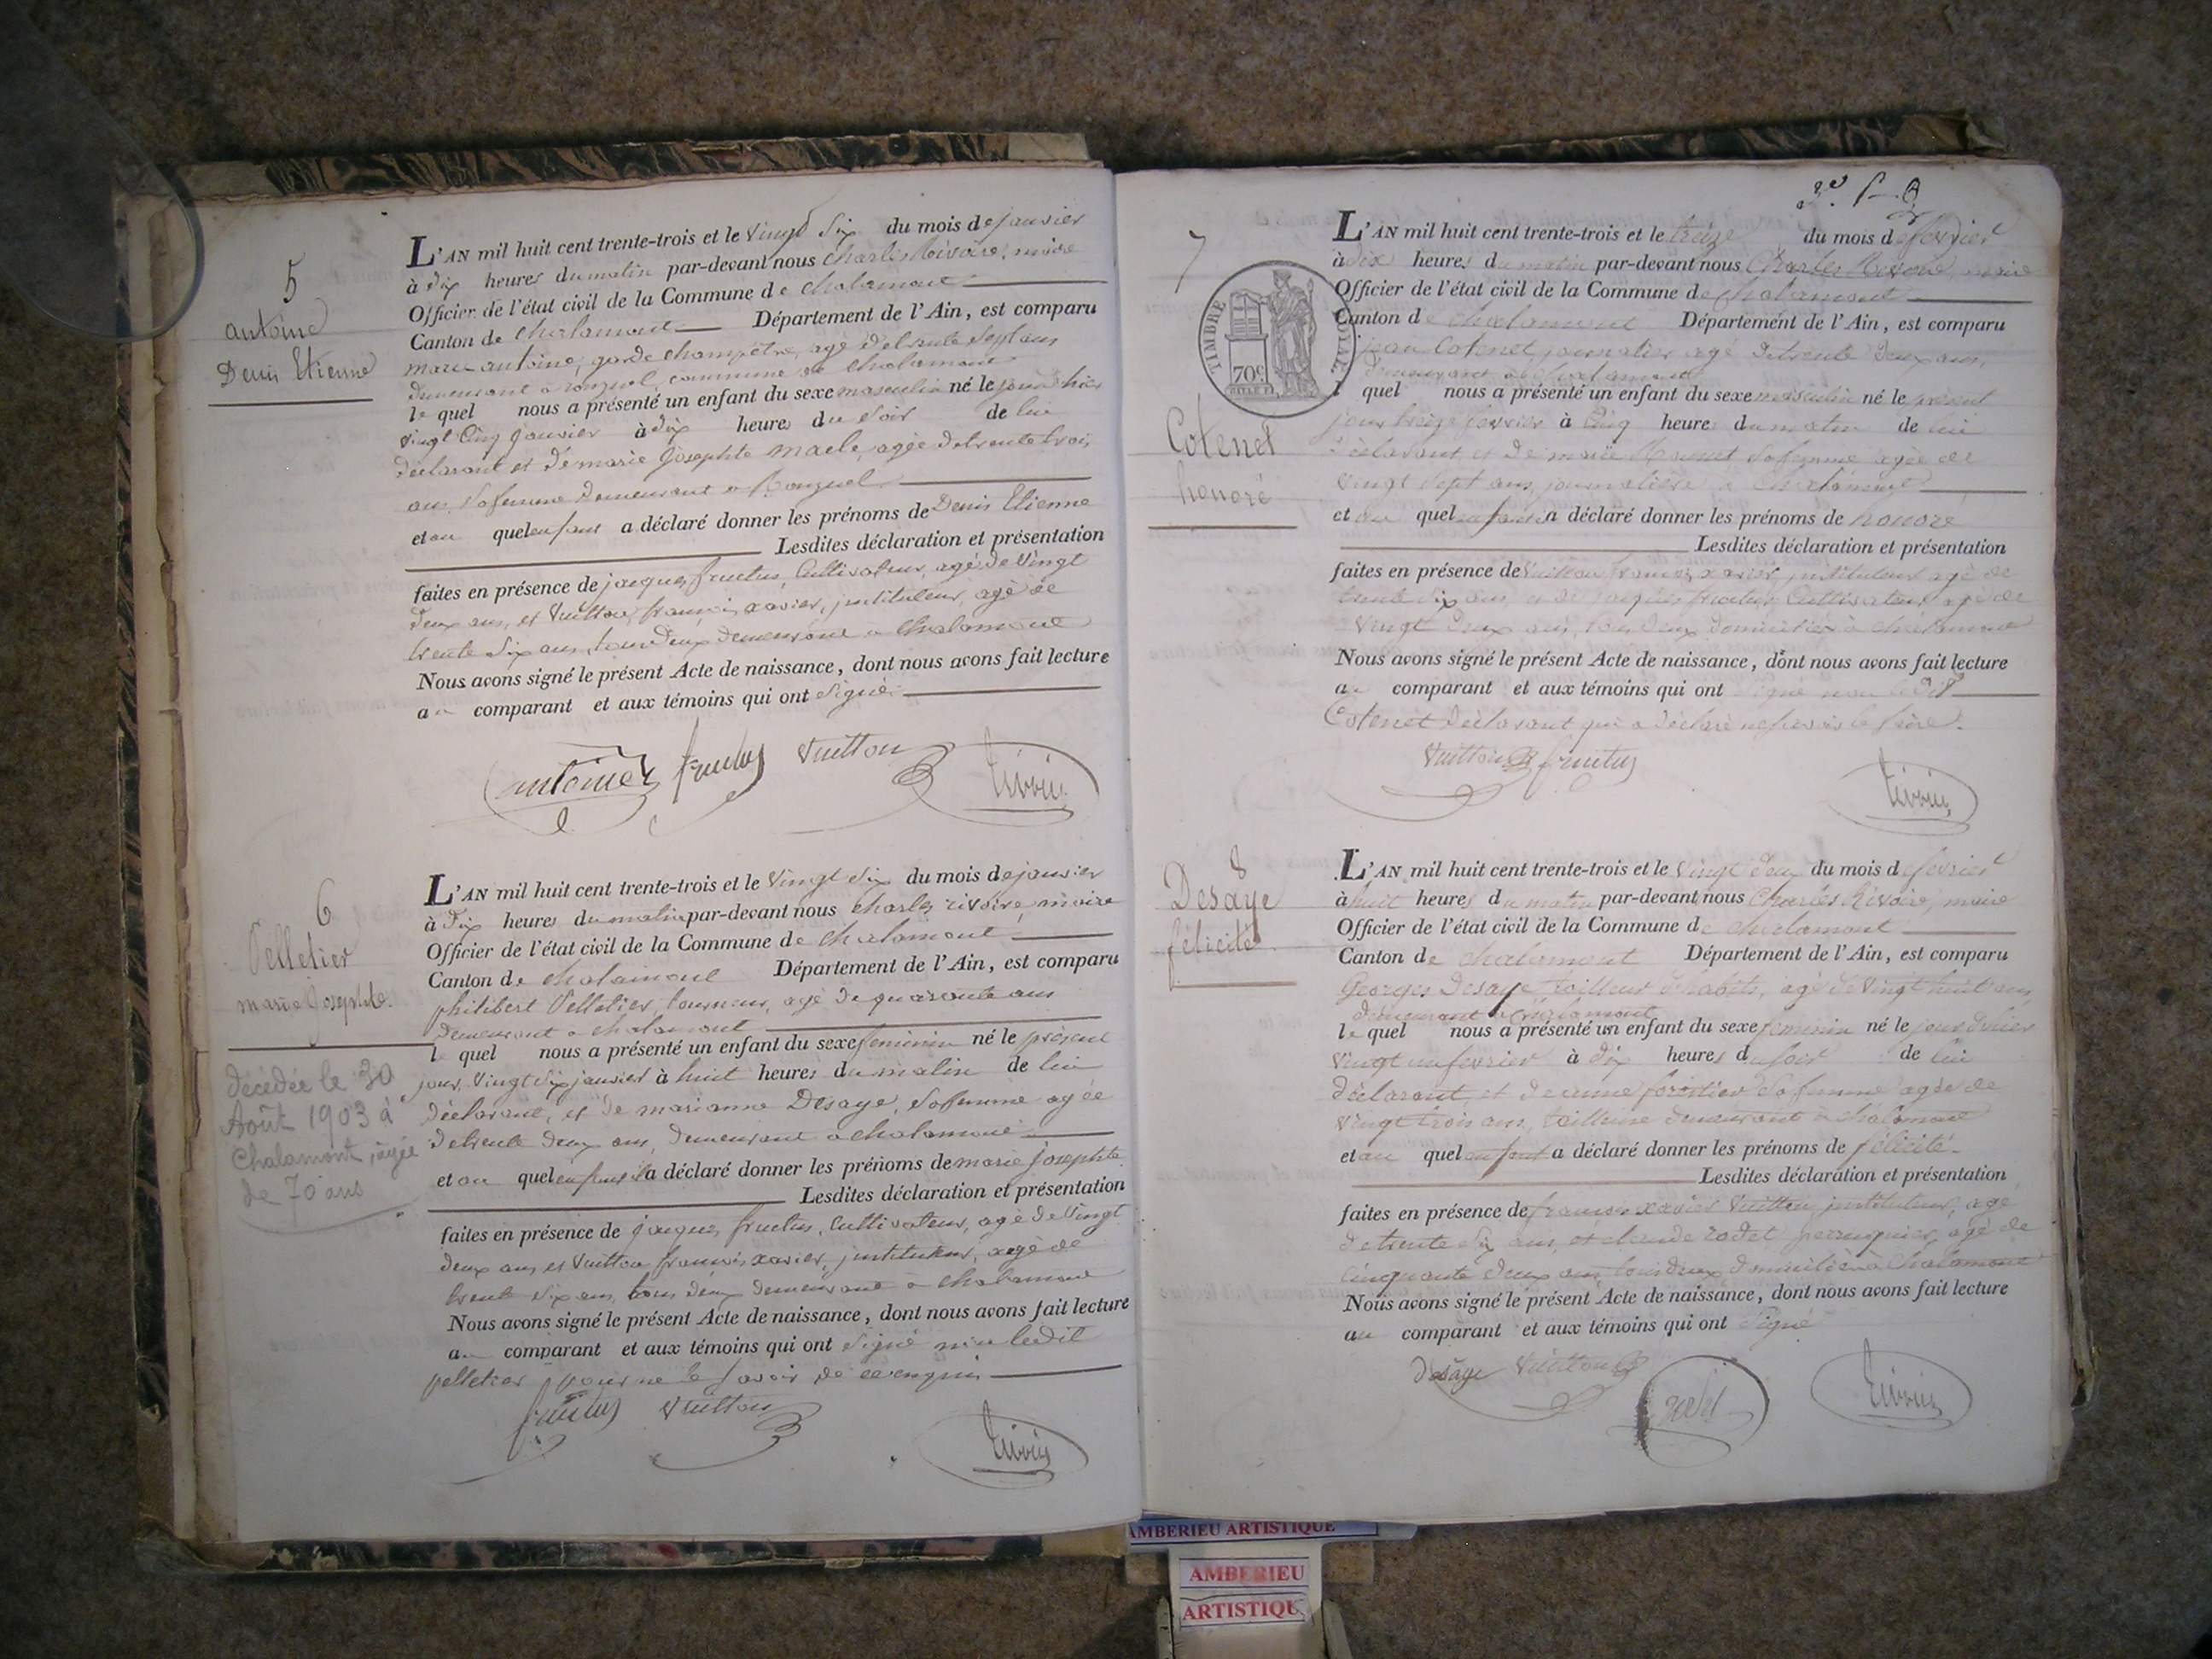 5
antoine
Denis Etienne
L'AN mil huit cent trente-trois et le Vingt Six du mois de janvier
à dix heures du matin par-devant nous Charles Rivoire, maire
Officier de l'état civil de la Commune de Chalamont
Canton de Chalamont Département de l'Ain, est comparu
marc antoine, garde champêtre, agé de trente Sept ans
demeurant a ronzuel, commune de Chalamont
le quel nous a présenté un enfant du sexe masculin né le jour d'hier
vingt Cinq janvier à dix heures du Soir de lui
déclarant et de marie josephte agée de trente trois
ans Sa femme Demeurant a Ronzuel
et au quel enfant a déclaré donner les prénoms de Denis Etienne
Lesdites déclaration et présentation
faites en présence de jacques fructus, Cultivateur, agé de Vingt
deux ans, et Vuitton françois xavier, instituteur, agé de
trente Six ans, tous Deux demeurant a Chalamont
Nous avons signé le présent Acte de naissance, dont nous avons fait lecture
au comparant et aux témoins qui ont Signé
antoine fructus Vuitton Rivoire
6
Pelletier
marie josephte.
décédée le 30
Août 1903 à
Chalamont, âgée
de 70 ans
L'AN mil huit cent trente-trois et le Vingt Six du mois de janvier
à dix heures du matin par-devant nous Charles rivoire, maire
Officier de l'état civil de la Commune de Chalamont
Canton de Chalamont Département de l'Ain, est comparu
philibert Pelletier, tourneur, agé de quarante ans
demeurant a Chalamont
le quel nous a présenté un enfant du sexe feminin né le présent
jour Vingt Six janvier à huit heures du matin de lui
Déclarant, et de marianne Desaye, Sa femme agée
de trente deux ans, demeurant a Chalamont
et au quel enfant il a déclaré donner les prénoms de marie josephte
Lesdites déclaration et présentation
faites en présence de jacques fructus, Cultivateur, agé de Vingt
deux ans et Vuitton françois xavier, instituteur, agé de
trente Six ans, tous deux demeurant a Chalamont
Nous avons signé le présent Acte de naissance, dont nous avons fait lecture
au comparant et aux témoins qui ont Signé non ledit
pelletier pour ne le savoir de ce enquis
fructus Vuitton Rivoire
7
TIMBRE ROYAL
70c
Cotenet
honoré
L'AN mil huit cent trente-trois et le treize du mois de fevrier
à dix heures du matin par-devant nous Charles Rivoire, maire
Officier de l'état civil de la Commune de Chalamont
Canton de Chalamont Département de l'Ain, est comparu
jean Cotenet, journalier agé de trente deux ans,
demeurant a Chalamont
le quel nous a présenté un enfant du sexe masculin né le présent
jour treize fevrier à Cinq heures du matin de lui
déclarant, et de marie Sa femme agée de
vingt Sept ans, journalière a Chalamont
et au quel enfant a déclaré donner les prénoms de honoré
Lesdites déclaration et présentation
faites en présence de Vuitton françois xavier, instituteur agé de
trente Six ans et de jacques fructus, Cultivateur, agé de
Vingt deux ans, tous deux domiciliés à Chalamont
Nous avons signé le présent Acte de naissance, dont nous avons fait lecture
au comparant et aux témoins qui ont Signé non ledit
Cotenet déclarant qui a déclaré ne savoir le faire.
Vuitton fructus Rivoire
8
Desaye
félicité.
L'AN mil huit cent trente-trois et le Vingt deux du mois de fevrier
à huit heures du matin par-devant nous Charles Rivoire, maire
Officier de l'état civil de la Commune de Chalamont
Canton de Chalamont Département de l'Ain, est comparu
Georges Desaye, tailleur d'habits, agé de Vingt huit ans,
demeurant à Chalamont
le quel nous a présenté un enfant du sexe feminin né le jour d'hier
vingt un fevrier à dix heures du soir de lui
Déclarant, et de anne forestier Sa femme agée de
Vingt trois ans, tailleuse demeurant a Chalamont
et au quel enfant a déclaré donner les prénoms de félicité.
Lesdites déclaration et présentation
faites en présence de françois xavier Vuitton, instituteur, agé
de trente Six ans, et claude rodet perruquier, agé de
Cinquante deux ans, tous deux domiciliés à Chalamont
Nous avons signé le présent Acte de naissance, dont nous avons fait lecture
au comparant et aux témoins qui ont Signé
Desaye Vuitton rodet Rivoire
AMBERIEU ARTISTIQUE
AMBERIEU
ARTISTIQU